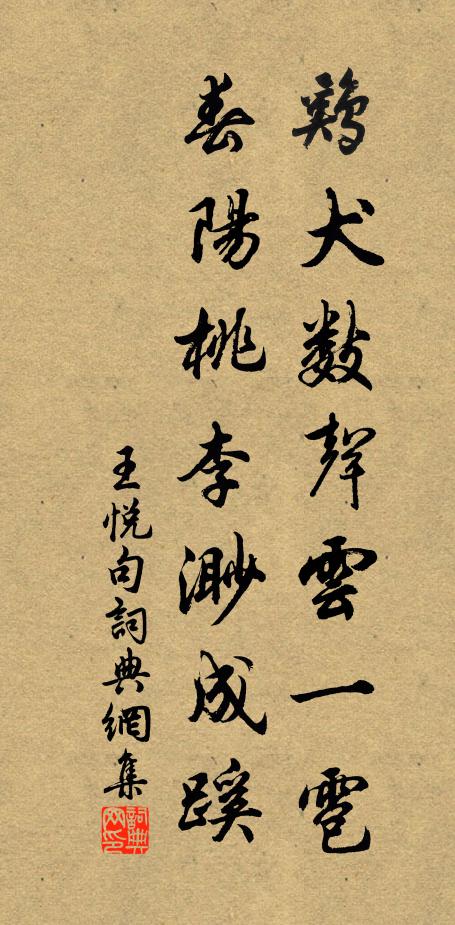 鷄犬數聲雲一雹
春陽桃李渺成蹊
王悅句詞典網集
詞典
网印